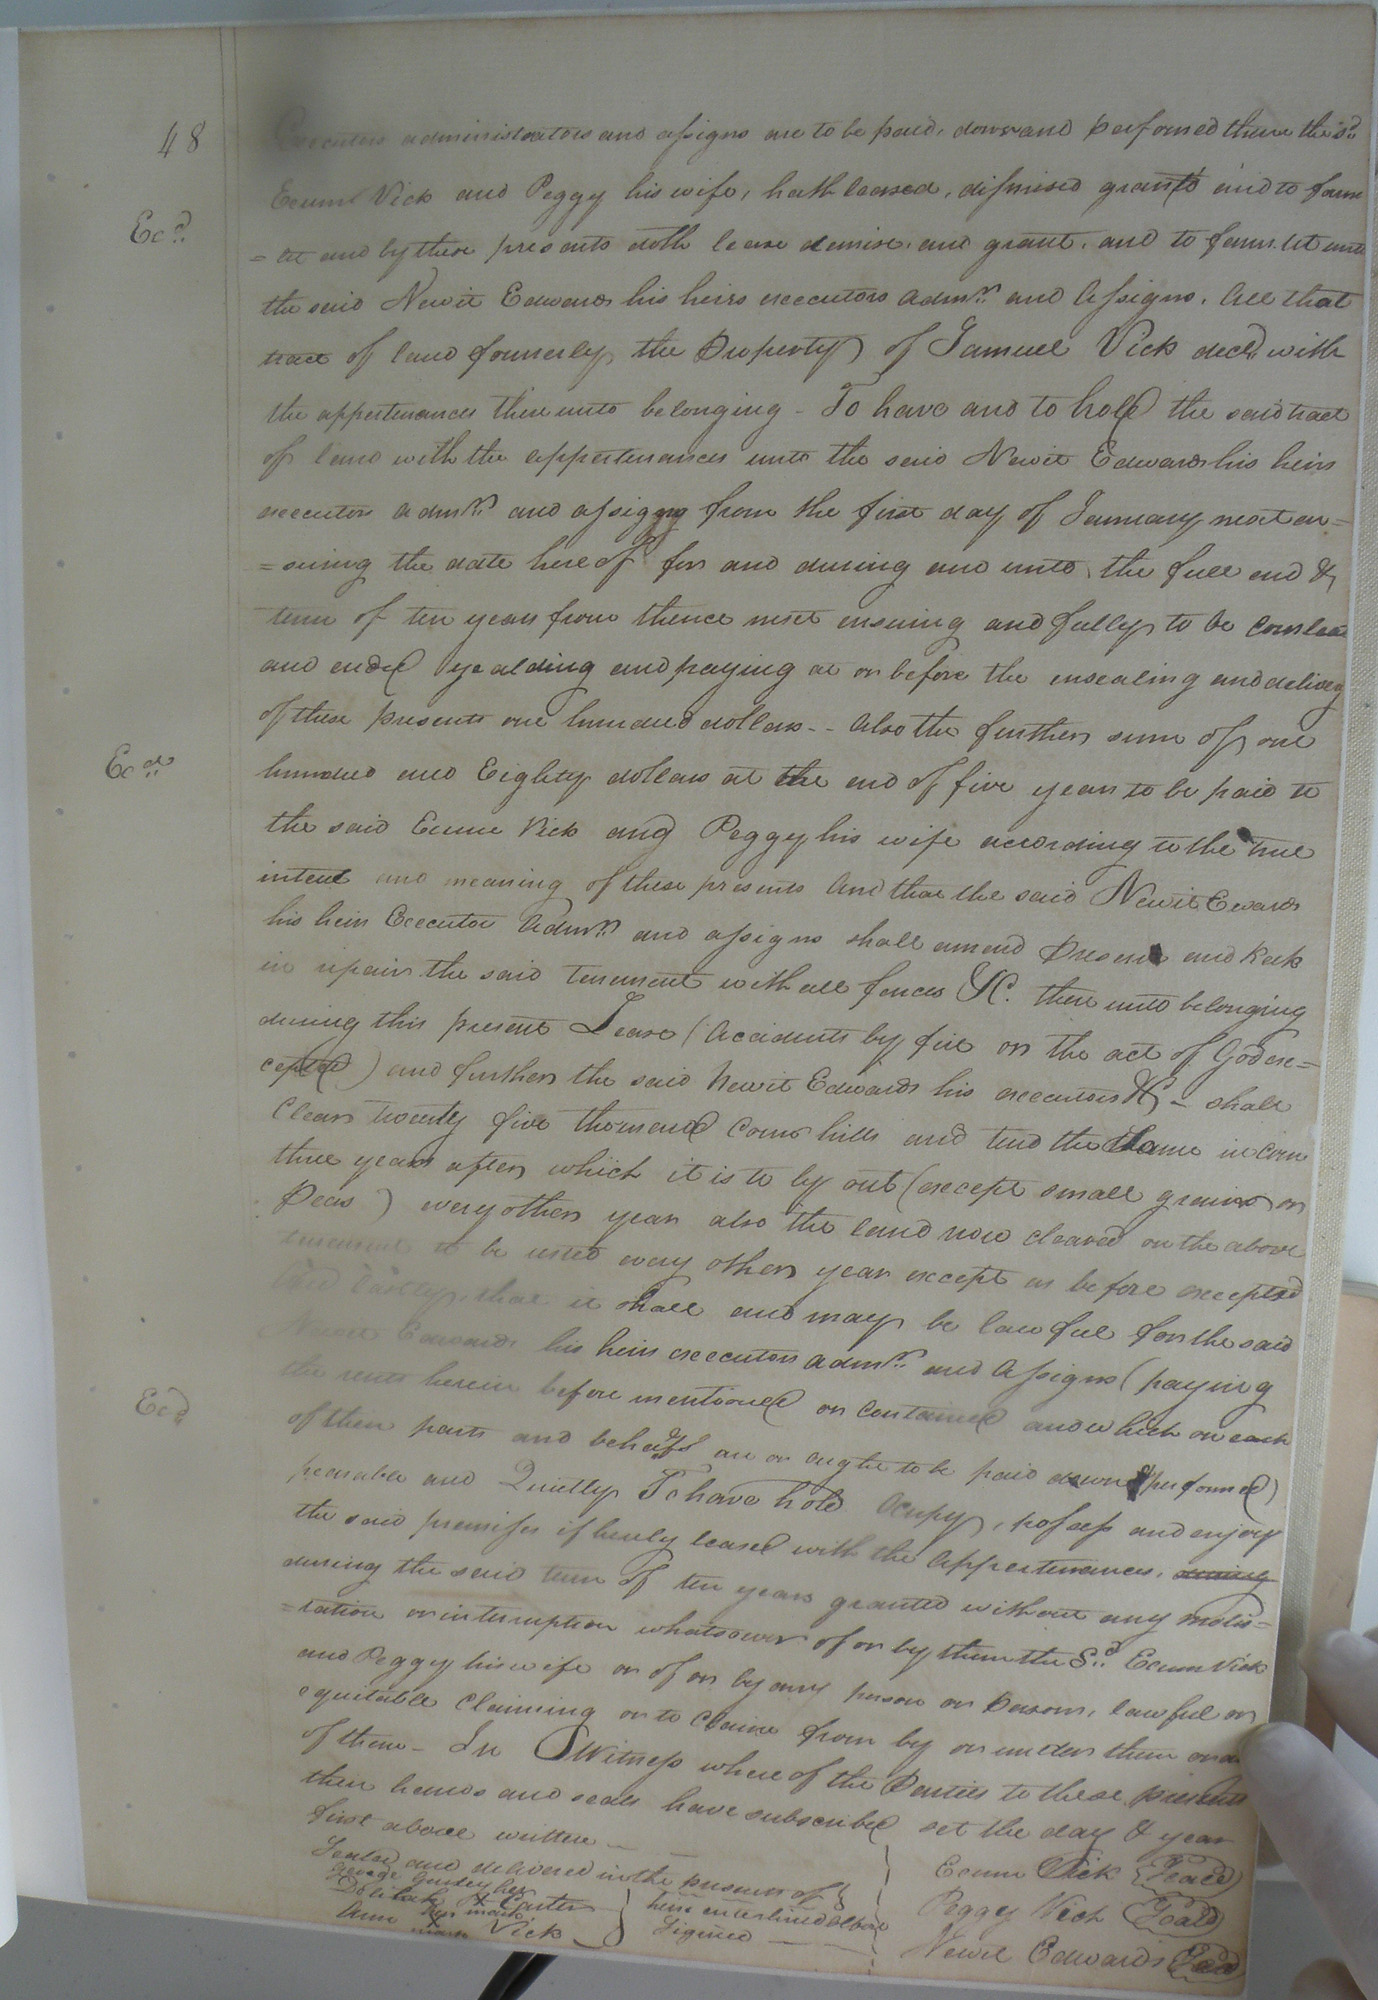 48
Executors administrators and assigns are to be paid, down and performed them the sd.
Ecum Vick and Peggy his wife, hath leased, dismised granted and to farm
Ecd.
= let and by these presents doth lease demise, and grant, and to farm let unto
the said Newit Edwards his heirs executors admrs. and assigns, all that
tract of land formerly the Property of Samuel Vick decd. with
the appertenances thereunto belonging - To have and to hold the said tract
of land with the appertenances unto the said Newit Edwards his heirs
executors admrs. and assigns from the first day of January next en=
=suing the date hereof for and during and unto the full end &
term of ten years from thence next ensuing and fully to be
and ended yealding and paying at or before the ensealing and delivery
of these presents one hundred dollars -- also the further sum of one
Ecd.
hundred and Eighty dollars at the end of five years to be paid to
the said Ecum Vick and Peggy his wife according to the true
intent and meaning of these presents And that the said Newit Edwards
his heirs Executor Admrs. and assigns shall amend and keek
in repair the said tenement with all fences &C. there unto belonging
during this present Lease (accidents by fire or the act of God ex=
cepted) and further the said Newit Edwards his executors &C - shall
Clear twenty five thousand corn hills and tend the same in corn
three years after which it is to ly out (except small grain or
Peas) every other year also the land now cleared on the above
tenement to be used every other year except as before excepted
And lastly that it shall and may be lawful for the said
Newit Edwards his heirs executors admrs. and assigns (paying
the rents herein before mentioned or contained and which on each
Ecd
of their parts and behalfs are or ought to be paid down & performed)
peacable and Quietly To have hold Ocupy, possess and enjoy
the said premises hereby leased with the appertenances,
during the said term of ten years granted without any moles=
=tation or interruption whatsoever of or by them the Sd. Ecum Vick
and Peggy his wife or of or by any person or persons, lawful or
equitable Claiming or to Claim from by or under them or
of them - In Witness where of the Parties to these presents
their hands and seals have subscribed set the day & year
first above written -
Sealed and delivered in the presence of
George Gurley
her
Delilah X Carter
her mark
Ann X Vick
mark
being enterlined before
Signed
Ecum Vick {Seald}
Peggy Vick {Seald}
Newit Edwards {Seald}